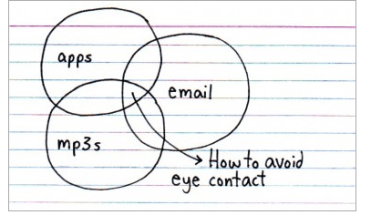 apps
email
mp3s
How to avoid
eye contact